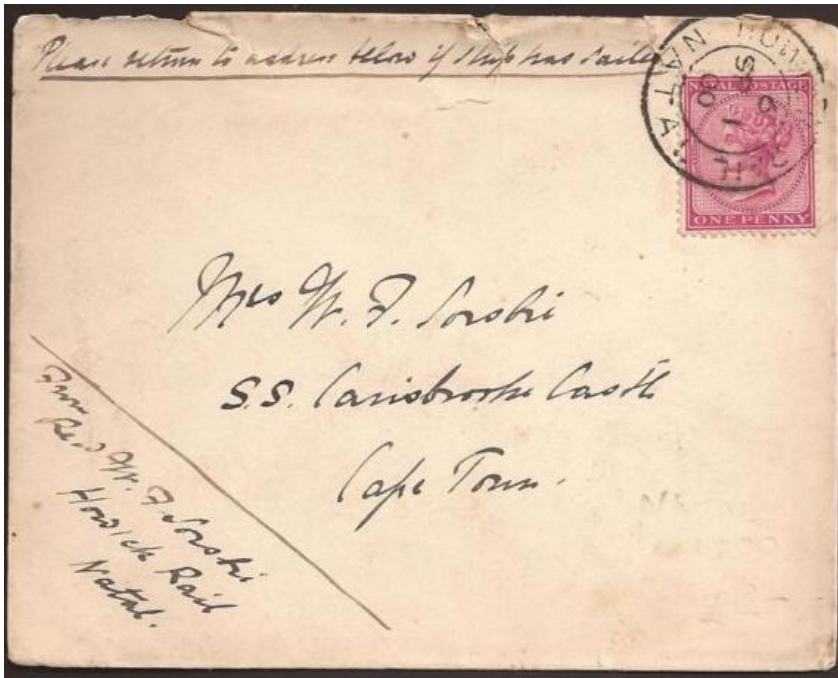 Please return to address below if ship has sailed
NATAL
NATAL POSTAGE
ONE PENNY
Mrs W. F. Sorsbie
S.S. Carisbrooke Castle
Cape Town.
From
Rev W. F. Sorsbie
Howick Rail
Natal.